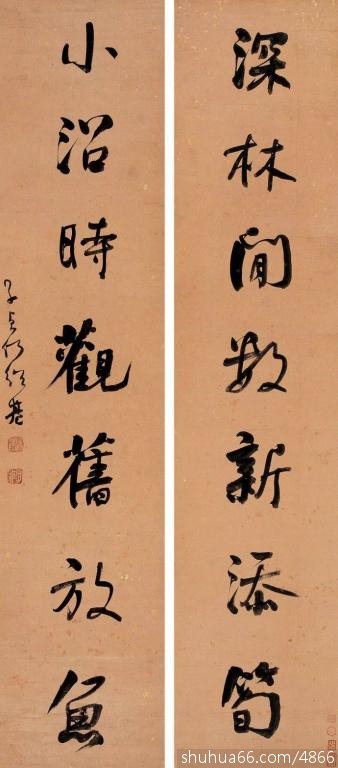 深林閒数新添筍
小沼時觀舊放魚
子貞何紹基
shuhua66.com/4866